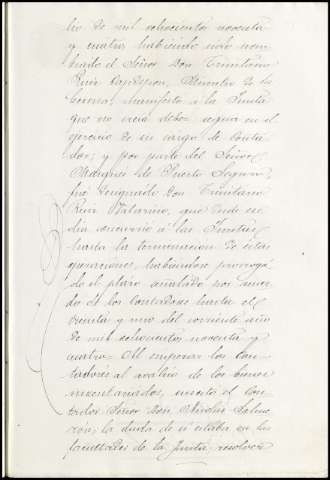 lio de mil ochocientos noventa
y cuatro, habiendo sido nom-
brado el Señor Don Trinitario
Ruiz Capdepon, Ministro de la
Corona, manifestó a la Junta
que no creia deber seguir en el
ejercicio de su cargo de Conta-
dor; y por parte del Señor
Marqués de Puerto Seguro
fué designado Don Trinitario
Ruiz Valarino, que desde ese
dia concurrió a las Juntas
hasta la terminacion de estas
operaciones, habiendose prorroga-
do el plazo señalado por acuer-
do de los Contadores hasta el
treinta y uno del corriente año
de mil ochocientos noventa y
cuatro = Al empezar los Con-
tadores al avalúo de los bienes
inventariados, suscitó el Con-
tador Señor Don Nicolás Salme-
rón, la duda de si estaba en las
facultades de la Junta resolver